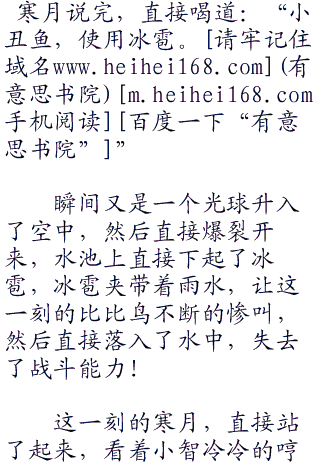 寒月说完，直接喝道：“小
丑鱼，使用冰雹。[请牢记住
域名www.heihei168.com](有
意思书院)[m.heihei168.com
手机阅读][百度一下“有意
思书院”]”
瞬间又是一个光球升入
了空中，然后直接爆裂开
来，水池上直接下起了冰
雹，冰雹夹带着雨水，让这
一刻的比比鸟不断的惨叫，
然后直接落入了水中，失去
了战斗能力！
这一刻的寒月，直接站
了起来，看着小智冷冷的哼